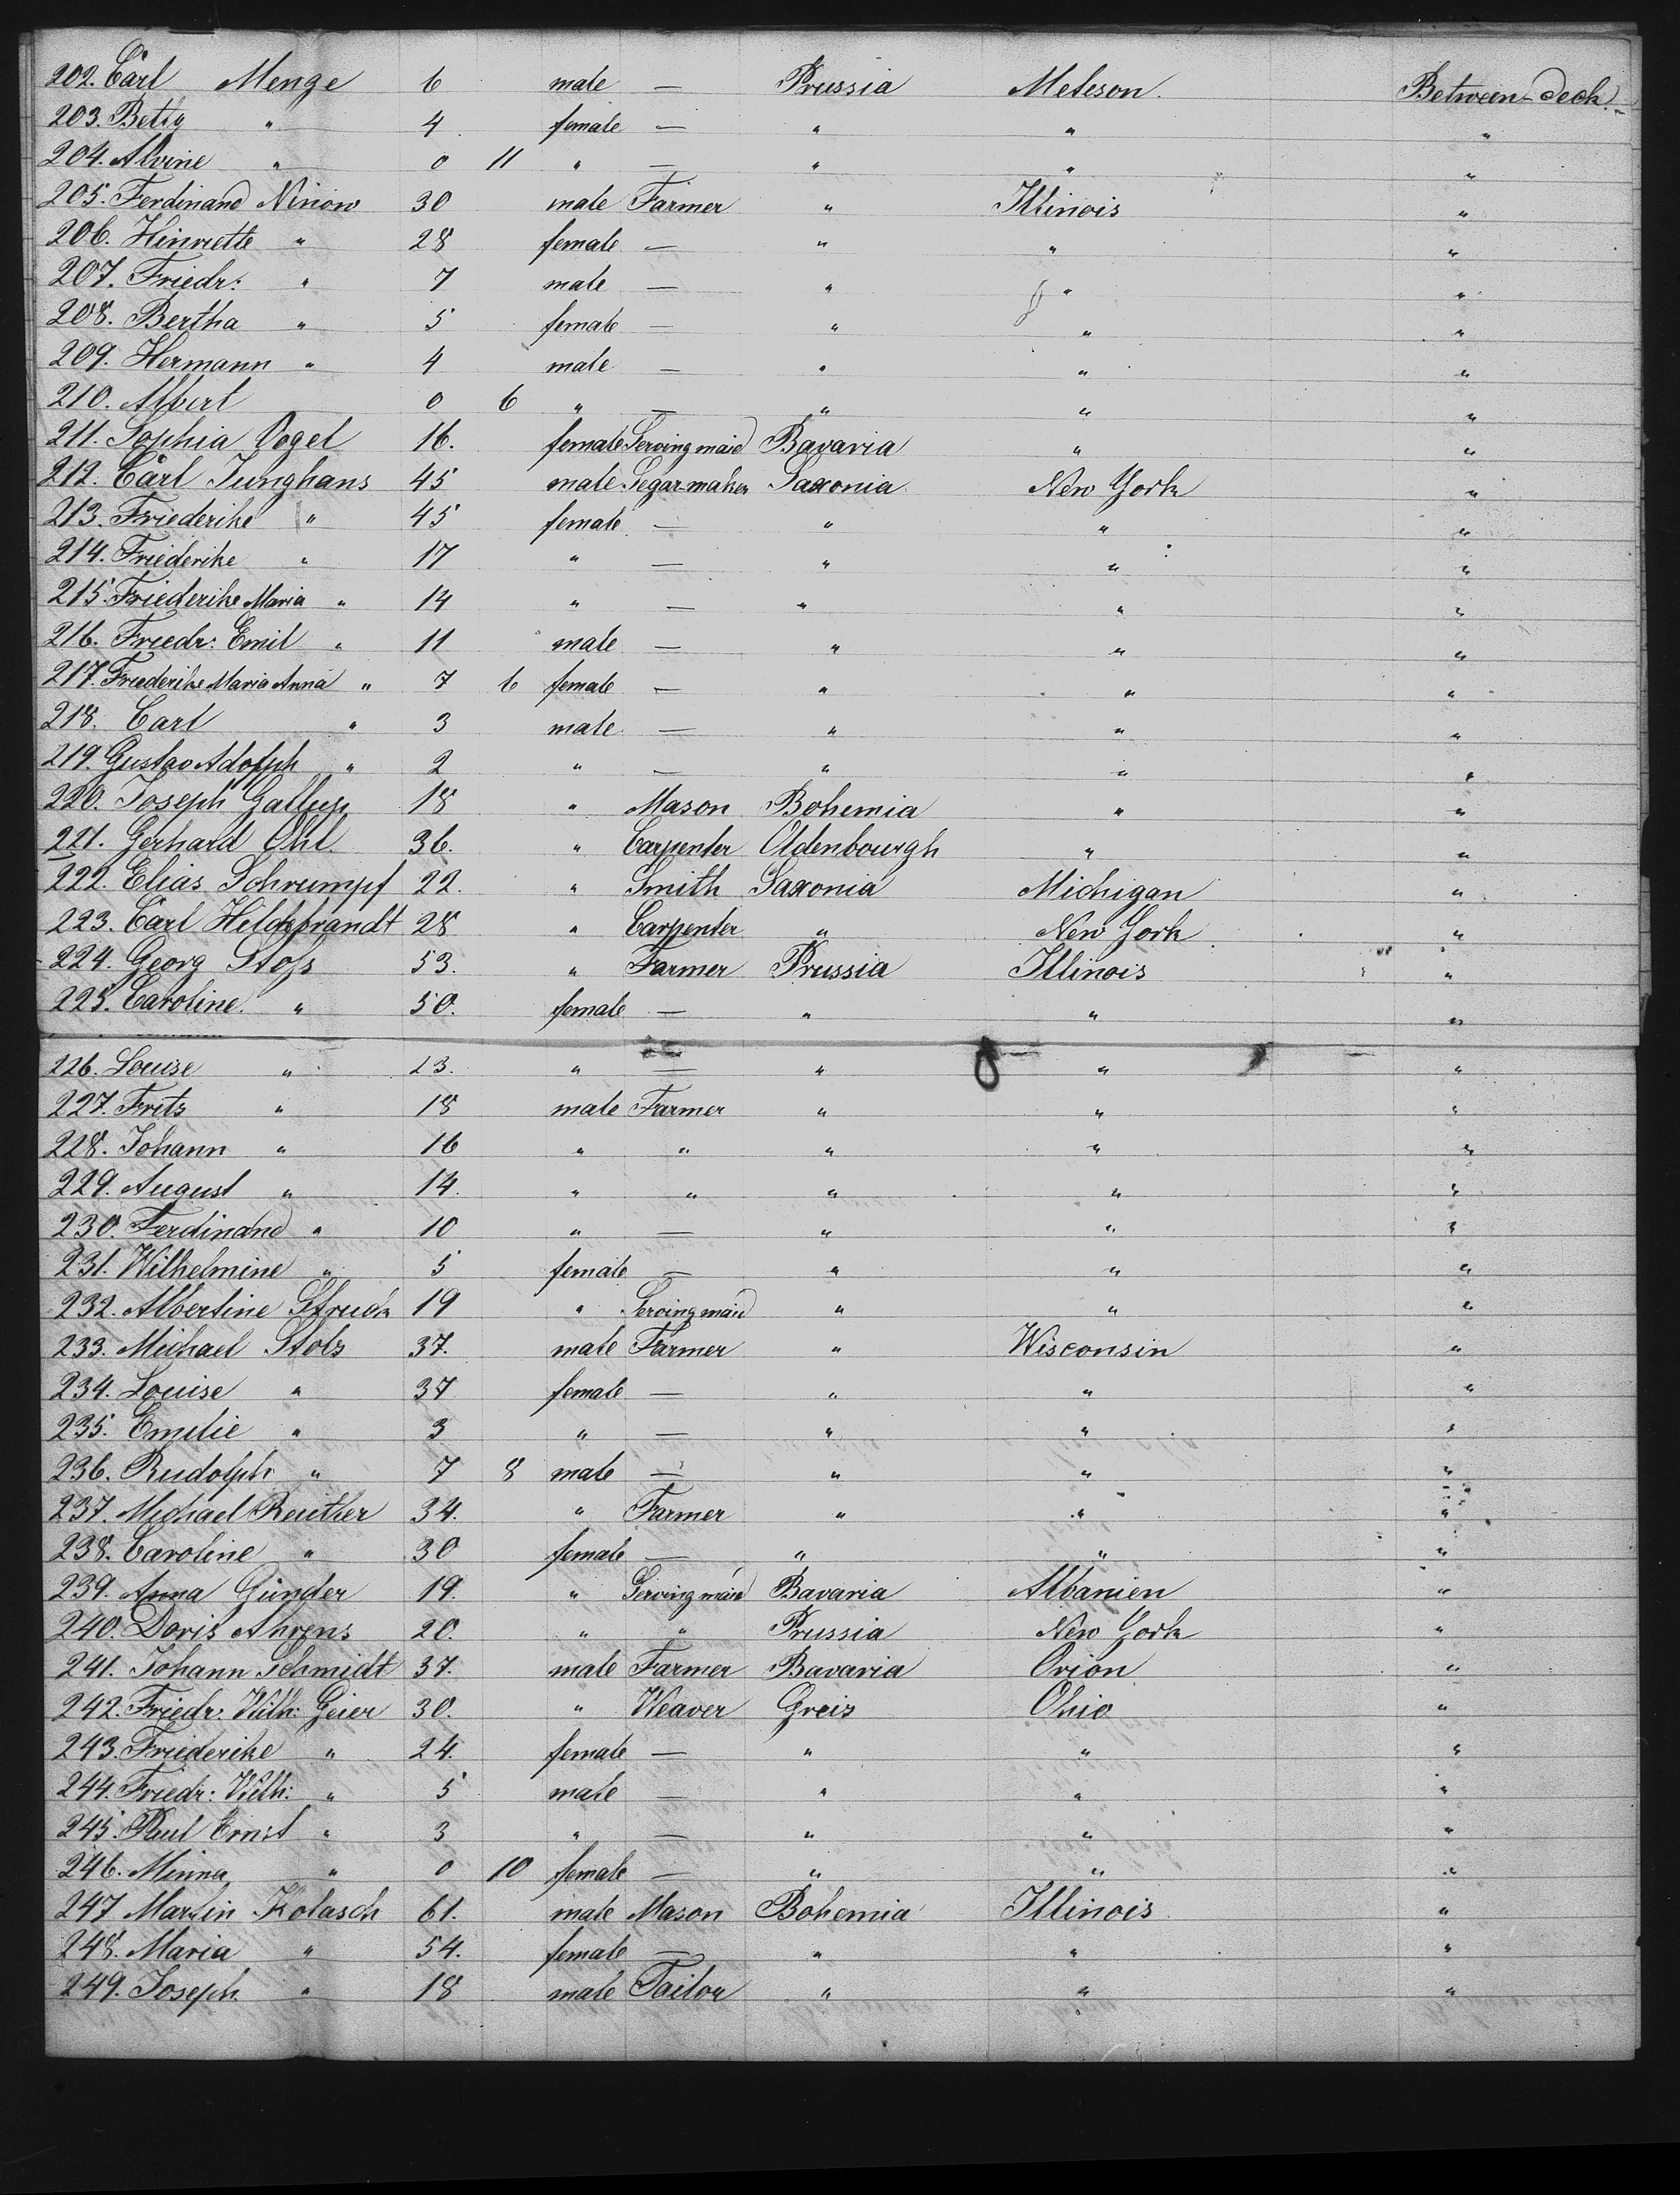 202. Carl Menge 6 male — Prussia Meleson. Between-deck.
203. Betty " 4 female — " " "
204. Alvine " 0 11 " — " " "
205. Ferdinand Ninow 30 male Farmer " Illinois "
206. Hinriette " 28 female — " " "
207. Friedr: " 7 male — " " "
208. Bertha " 5 female — " " "
209. Hermann " 4 male — " " "
210. Albert 0 6 " — " " "
211. Sophia Vogel 16. female Serving maid Bavaria " "
212. Carl Junghans 45 male Segar-maker Saxonia. New York "
213. Friederike " 45 female — " " "
214. Friederike " 17 " — " " "
215. Friederike Maria " 14 " — " " "
216. Friedr: Emil " 11 male — " " "
217. Friederike Maria Anna " 7 6 female — " " "
218. Carl " 3 male — " " "
219. Gustav Adolph " 2 " — " " "
220. Joseph Gallus 18 " Mason Bohemia " "
221. Gerhard Ohl 36. " Carpenter Oldenbourgh " "
222. Elias Schrumpf 22. " Smith Saxonia Michigan "
223. Carl Hildebrandt 28 " Carpenter " New York "
224. Georg Stoss 53. " Farmer Prussia Illinois "
225. Caroline " 50. female — " " "
226. Louise " 23. " — " " "
227. Fritz " 18 male Farmer " " "
228. Johann " 16 " " " " "
229. August " 14. " " " " "
230. Ferdinand " 10 " — " " "
231. Wilhelmine " 5 female — " " "
232. Albertine 19 " Serving maid " " "
233. Michael Stolz 37. male Farmer " Wisconsin "
234. Louise " 37 female — " " "
235. Emilie " 3 " — " " "
236. Rudolph " 7 8 male — " " "
237. Michael Reuther 34. " Farmer " " "
238. Caroline " 30 female — " " "
239. Anna Günder 19. " Serving maid Bavaria Albanien "
240. Doris Ahrens 20. " " Prussia New York "
241. Johann Schmidt 37. male Farmer Bavaria Orion "
242. Friedr: Wilh: Geier 30. " Weaver Greiz Ohio "
243. Friederike " 24. female — " " "
244. Friedr: Wilh: " 5 male — " " "
245. Paul Ernst " 3 " — " " "
246. Minna " 0 10 female — " " "
247 Martin Kolasch 61. male Mason Bohemia Illinois "
248. Maria " 54. female — " " "
249. Joseph " 18 male Tailor " " "